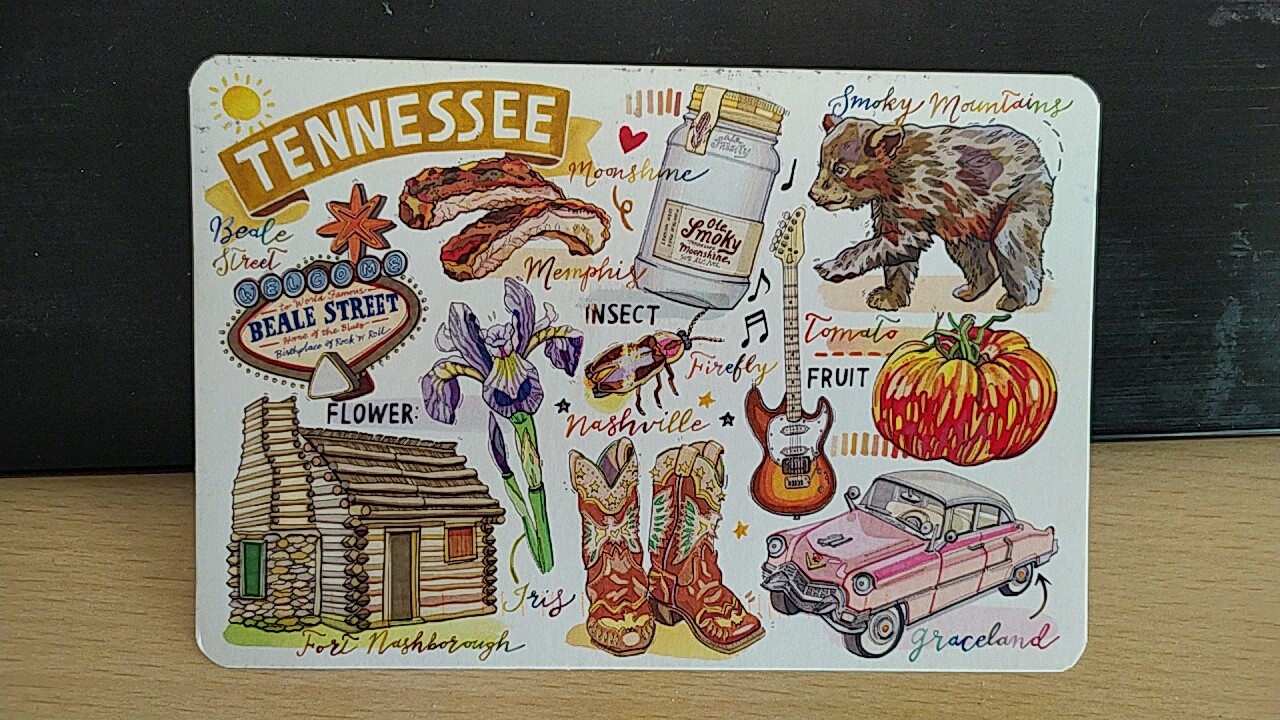 TENNESSEE
Smoky Mountains
Moonshine
Beale
Street
WELCOME
to World Famous
BEALE STREET
Home of the Blues
Birthplace of Rock 'n' Roll
Memphis
Ole
Smoky
Tennessee
Moonshine
INSECT
Firefly
Tomato
FRUIT
FLOWER:
Nashville
Iris
Fort Nashborough
Graceland